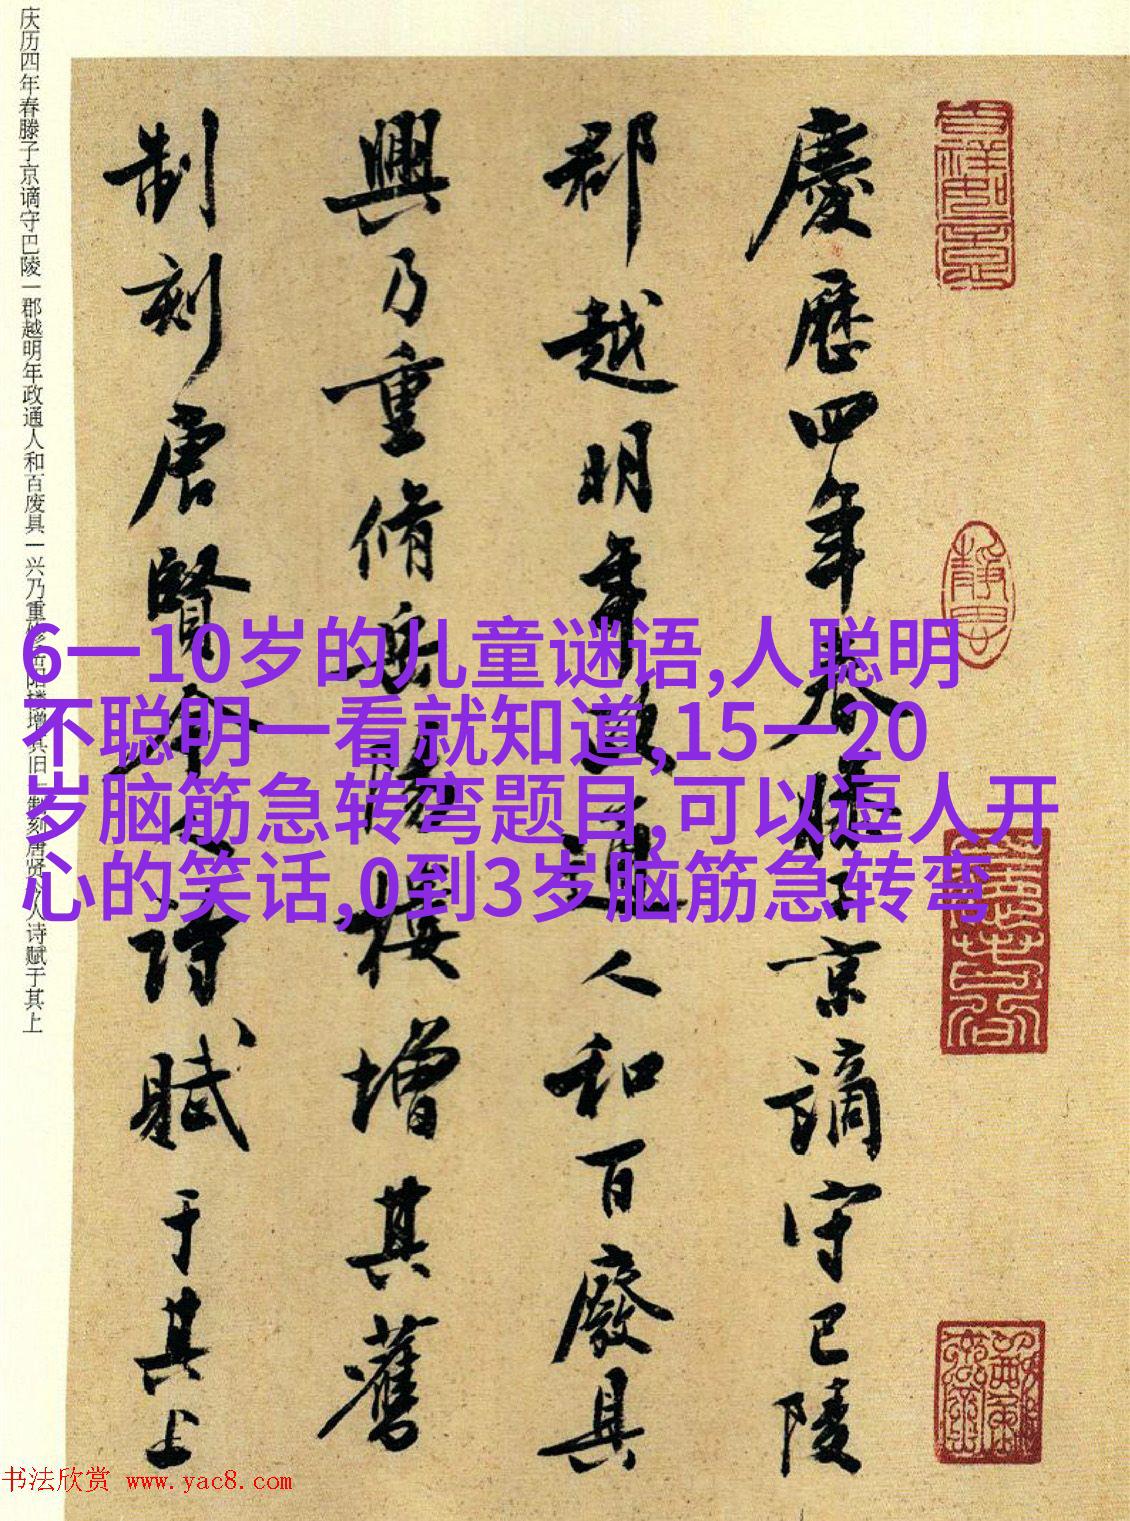 庆历四年春滕子京谪守巴陵一郡越明年政通人和百废具一兴乃重修岳阳楼增其旧一制刻唐贤今人诗赋于其上
慶歷四年春滕子京謫守巴陵
郡越明年政通人和百廢具
興乃重脩岳陽樓增其舊
制刻唐賢今人詩賦于其上
6一10岁的儿童谜语,人聪明
不聪明一看就知道,15一20
岁脑筋急转弯题目,可以逗人开
心的笑话,0到3岁脑筋急转弯
书法欣赏 www.yac8.com